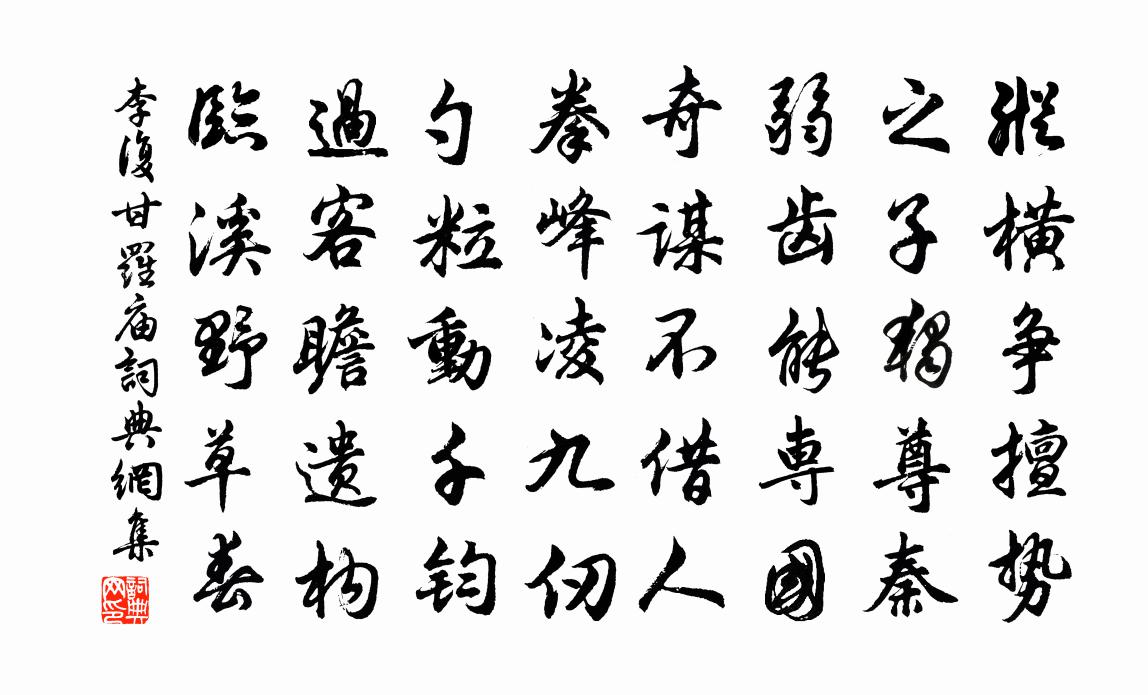 縱橫争擅勢
之子獨尊秦
弱齿能専國
奇謀不借人
拳峰凌九仞
勺粒動千钧
過客瞻遗构
臨溪野草春
李復甘羅庙詞典網集
詞典網印